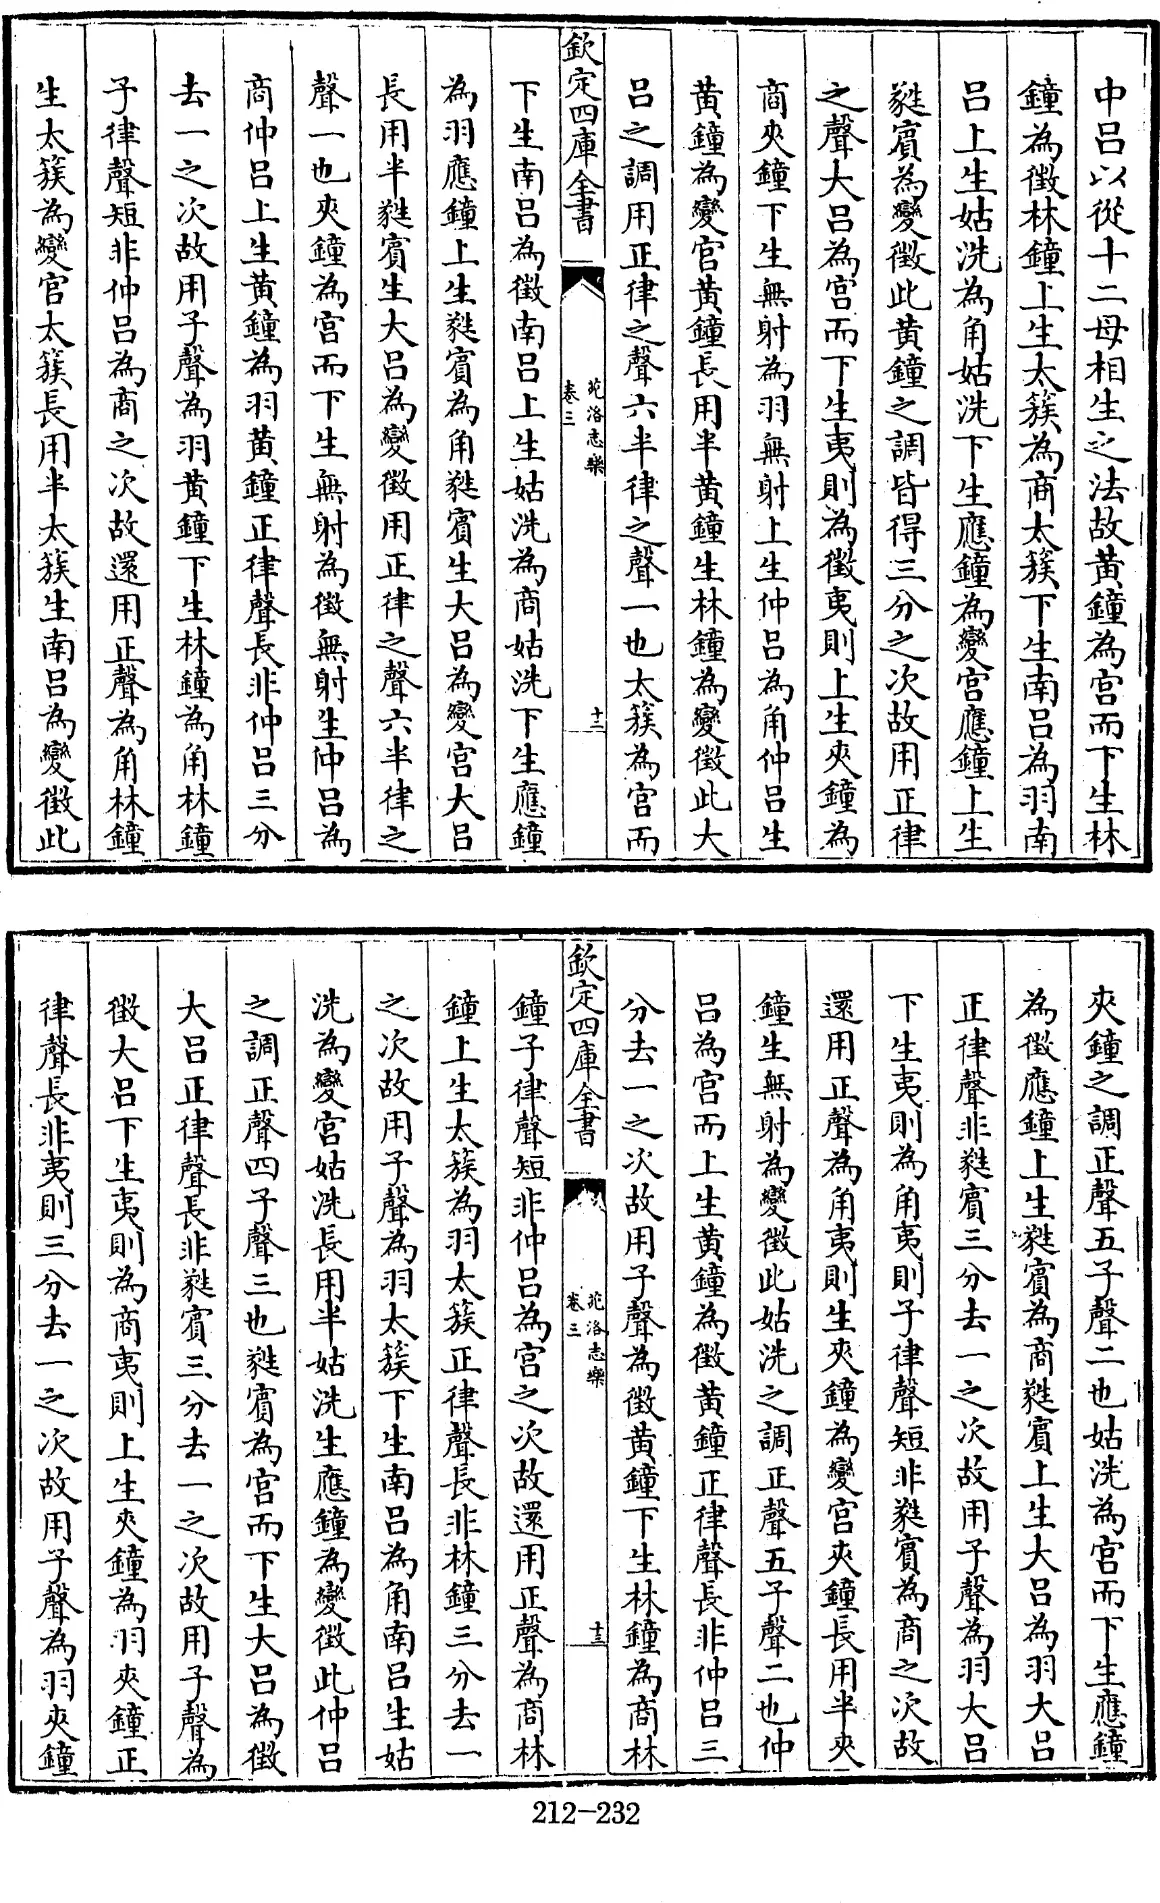 中呂以從十二母相生之法故黄鐘為宫而下生林
鐘為徵林鐘上生太簇為商太簇下生南呂為羽南
呂上生姑洗為角姑洗下生應鐘為變宫應鐘上生
蕤賓為變徵此黄鐘之調皆得三分之次故用正律
之聲大呂為宫而下生夷則為徵夷則上生夾鐘為
商夾鐘下生無射為羽無射上生仲呂為角仲呂生
黄鐘為變宫黄鐘長用半黄鐘生林鐘為變徵此大
呂之調用正律之聲六半律之聲一也太簇為宫而
欽定四庫全書
苑洛志樂
卷三
十二
下生南呂為徵南呂上生姑洗為商姑洗下生應鐘
為羽應鐘上生蕤賓為角蕤賓生大呂為變宫大呂
長用半蕤賓生大呂為變徵用正律之聲六半律之
聲一也夾鐘為宫而下生無射為徵無射生仲呂為
商仲呂上生黄鐘為羽黄鐘正律聲長非仲呂三分
去一之次故用子聲為羽黄鐘下生林鐘為角林鐘
子律聲短非仲呂為商之次故還用正聲為角林鐘
生太簇為變宫太簇長用半太簇生南呂為變徵此
夾鐘之調正聲五子聲二也姑洗為宫而下生應鐘
為徵應鐘上生蕤賓為商蕤賓上生大呂為羽大呂
正律聲非蕤賓三分去一之次故用子聲為羽大呂
下生夷則為角夷則子律聲短非蕤賓為商之次故
還用正聲為角夷則生夾鐘為變宫夾鐘長用半夾
鐘生無射為變徵此姑洗之調正聲五子聲二也仲
呂為宫而上生黄鐘為徵黄鐘正律聲長非仲呂三
分去一之次故用子聲為徵黄鐘下生林鐘為商林
欽定四庫全書
苑洛志樂
卷三
十三
鐘子律聲短非仲呂為宫之次故還用正聲為商林
鐘上生太簇為羽太簇正律聲長非林鐘三分去一
之次故用子聲為羽太簇下生南呂為角南呂生姑
洗為變宫姑洗長用半姑洗生應鐘為變徵此仲呂
之調正聲四子聲三也蕤賓為宫而下生大呂為徵
大呂正律聲長非蕤賓三分去一之次故用子聲為
徵大呂下生夷則為商夷則上生夾鐘為羽夾鐘正
律聲長非夷則三分去一之次故用子聲為羽夾鐘
212-232